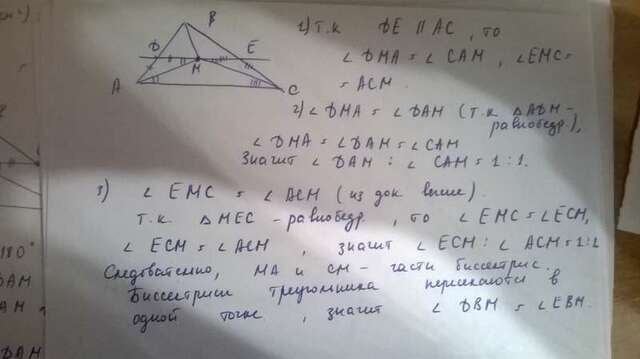 см²)
B
D
E
M
A
C
1) т.к DE || AC, то
∠DMA = ∠CAM, ∠EMC =
= ACM.
2) ∠DMA = ∠DAM (т.к △ADM -
равнобедр.),
∠DMA = ∠DAM = ∠CAM
Значит ∠DAM : ∠CAM = 1 : 1.
3) ∠EMC = ∠ACM (из док выше).
т.к. △MEC - равнобедр, то ∠EMC = ∠ECM,
∠ECM = ∠ACM, значит ∠ECM : ∠ACM = 1:1
Следовательно, MA и CM - части биссектрис.
Биссектрисы треугольника пересекаются в
одной точке, значит ∠DBM = ∠EBM.
180°
DAM
AM
DAM